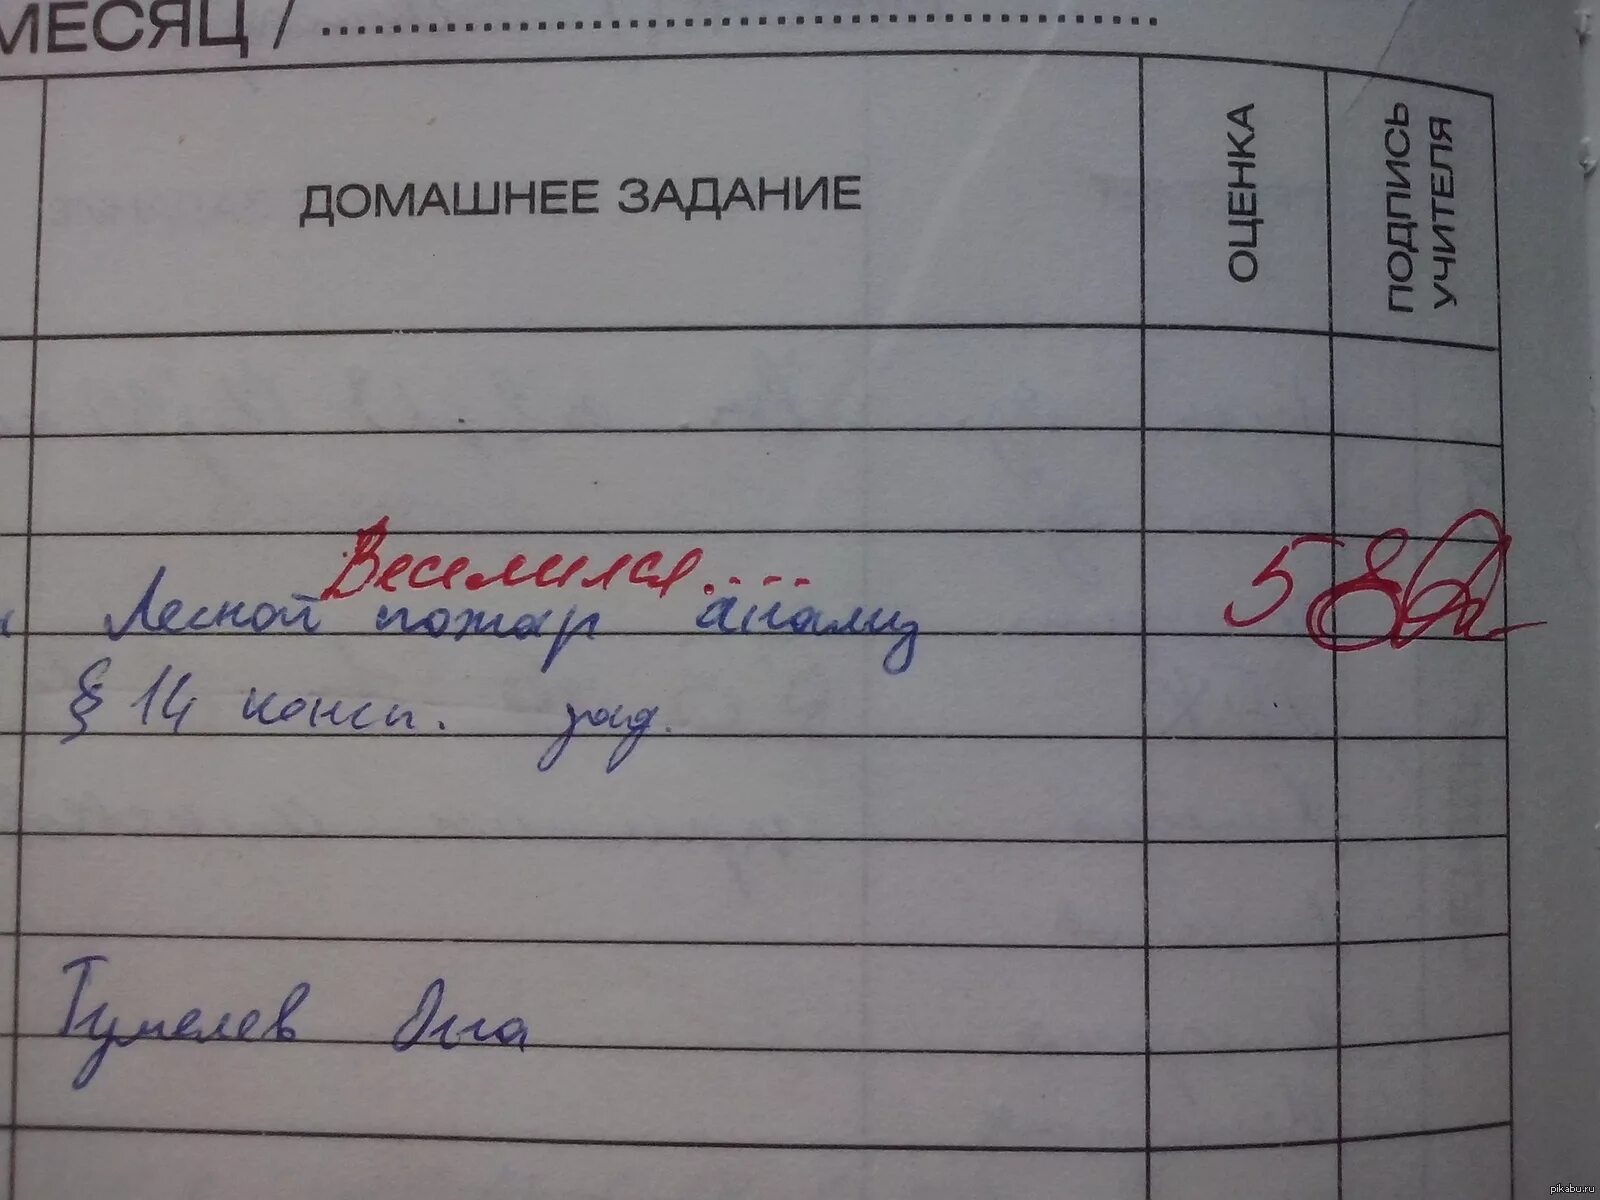 МЕСЯЦ / ........................................
ДОМАШНЕЕ ЗАДАНИЕ
ОЦЕНКА
ПОДПИСЬ УЧИТЕЛЯ
Веселился....
Лесной пожар анализ
5
§ 14 консп. зад.
Гумелев Она
pikabu.ru